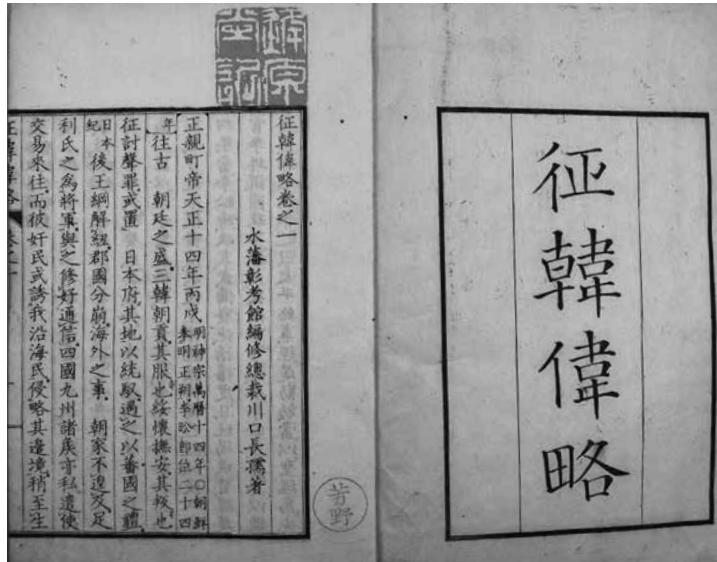 征韓偉略
征韓偉略卷之一
水藩彰考館編修總裁川口長孺著
正親町帝天正十四年丙戌明神宗萬曆十四年○朝鮮李明正朔李昖即位二十四
年往古 朝廷之盛三韓朝貢其服也綏懷撫安其叛也
征討聲罪或置 日本府其地以統馭遇之以蕃國之禮
日本紀後王綱解紐郡國分崩海外之事 朝家不遑及足
利氏之為將軍與之修好通信四國九州諸矦亦私遣使
交易來往而彼奸民或誘我沿海民侵略其邊境稍至生
征韓偉略 卷之一
芳野